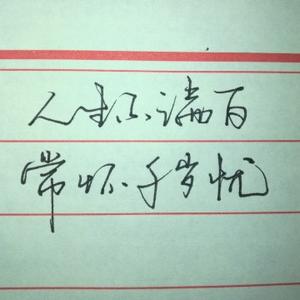 人生不满百
常怀千岁忧